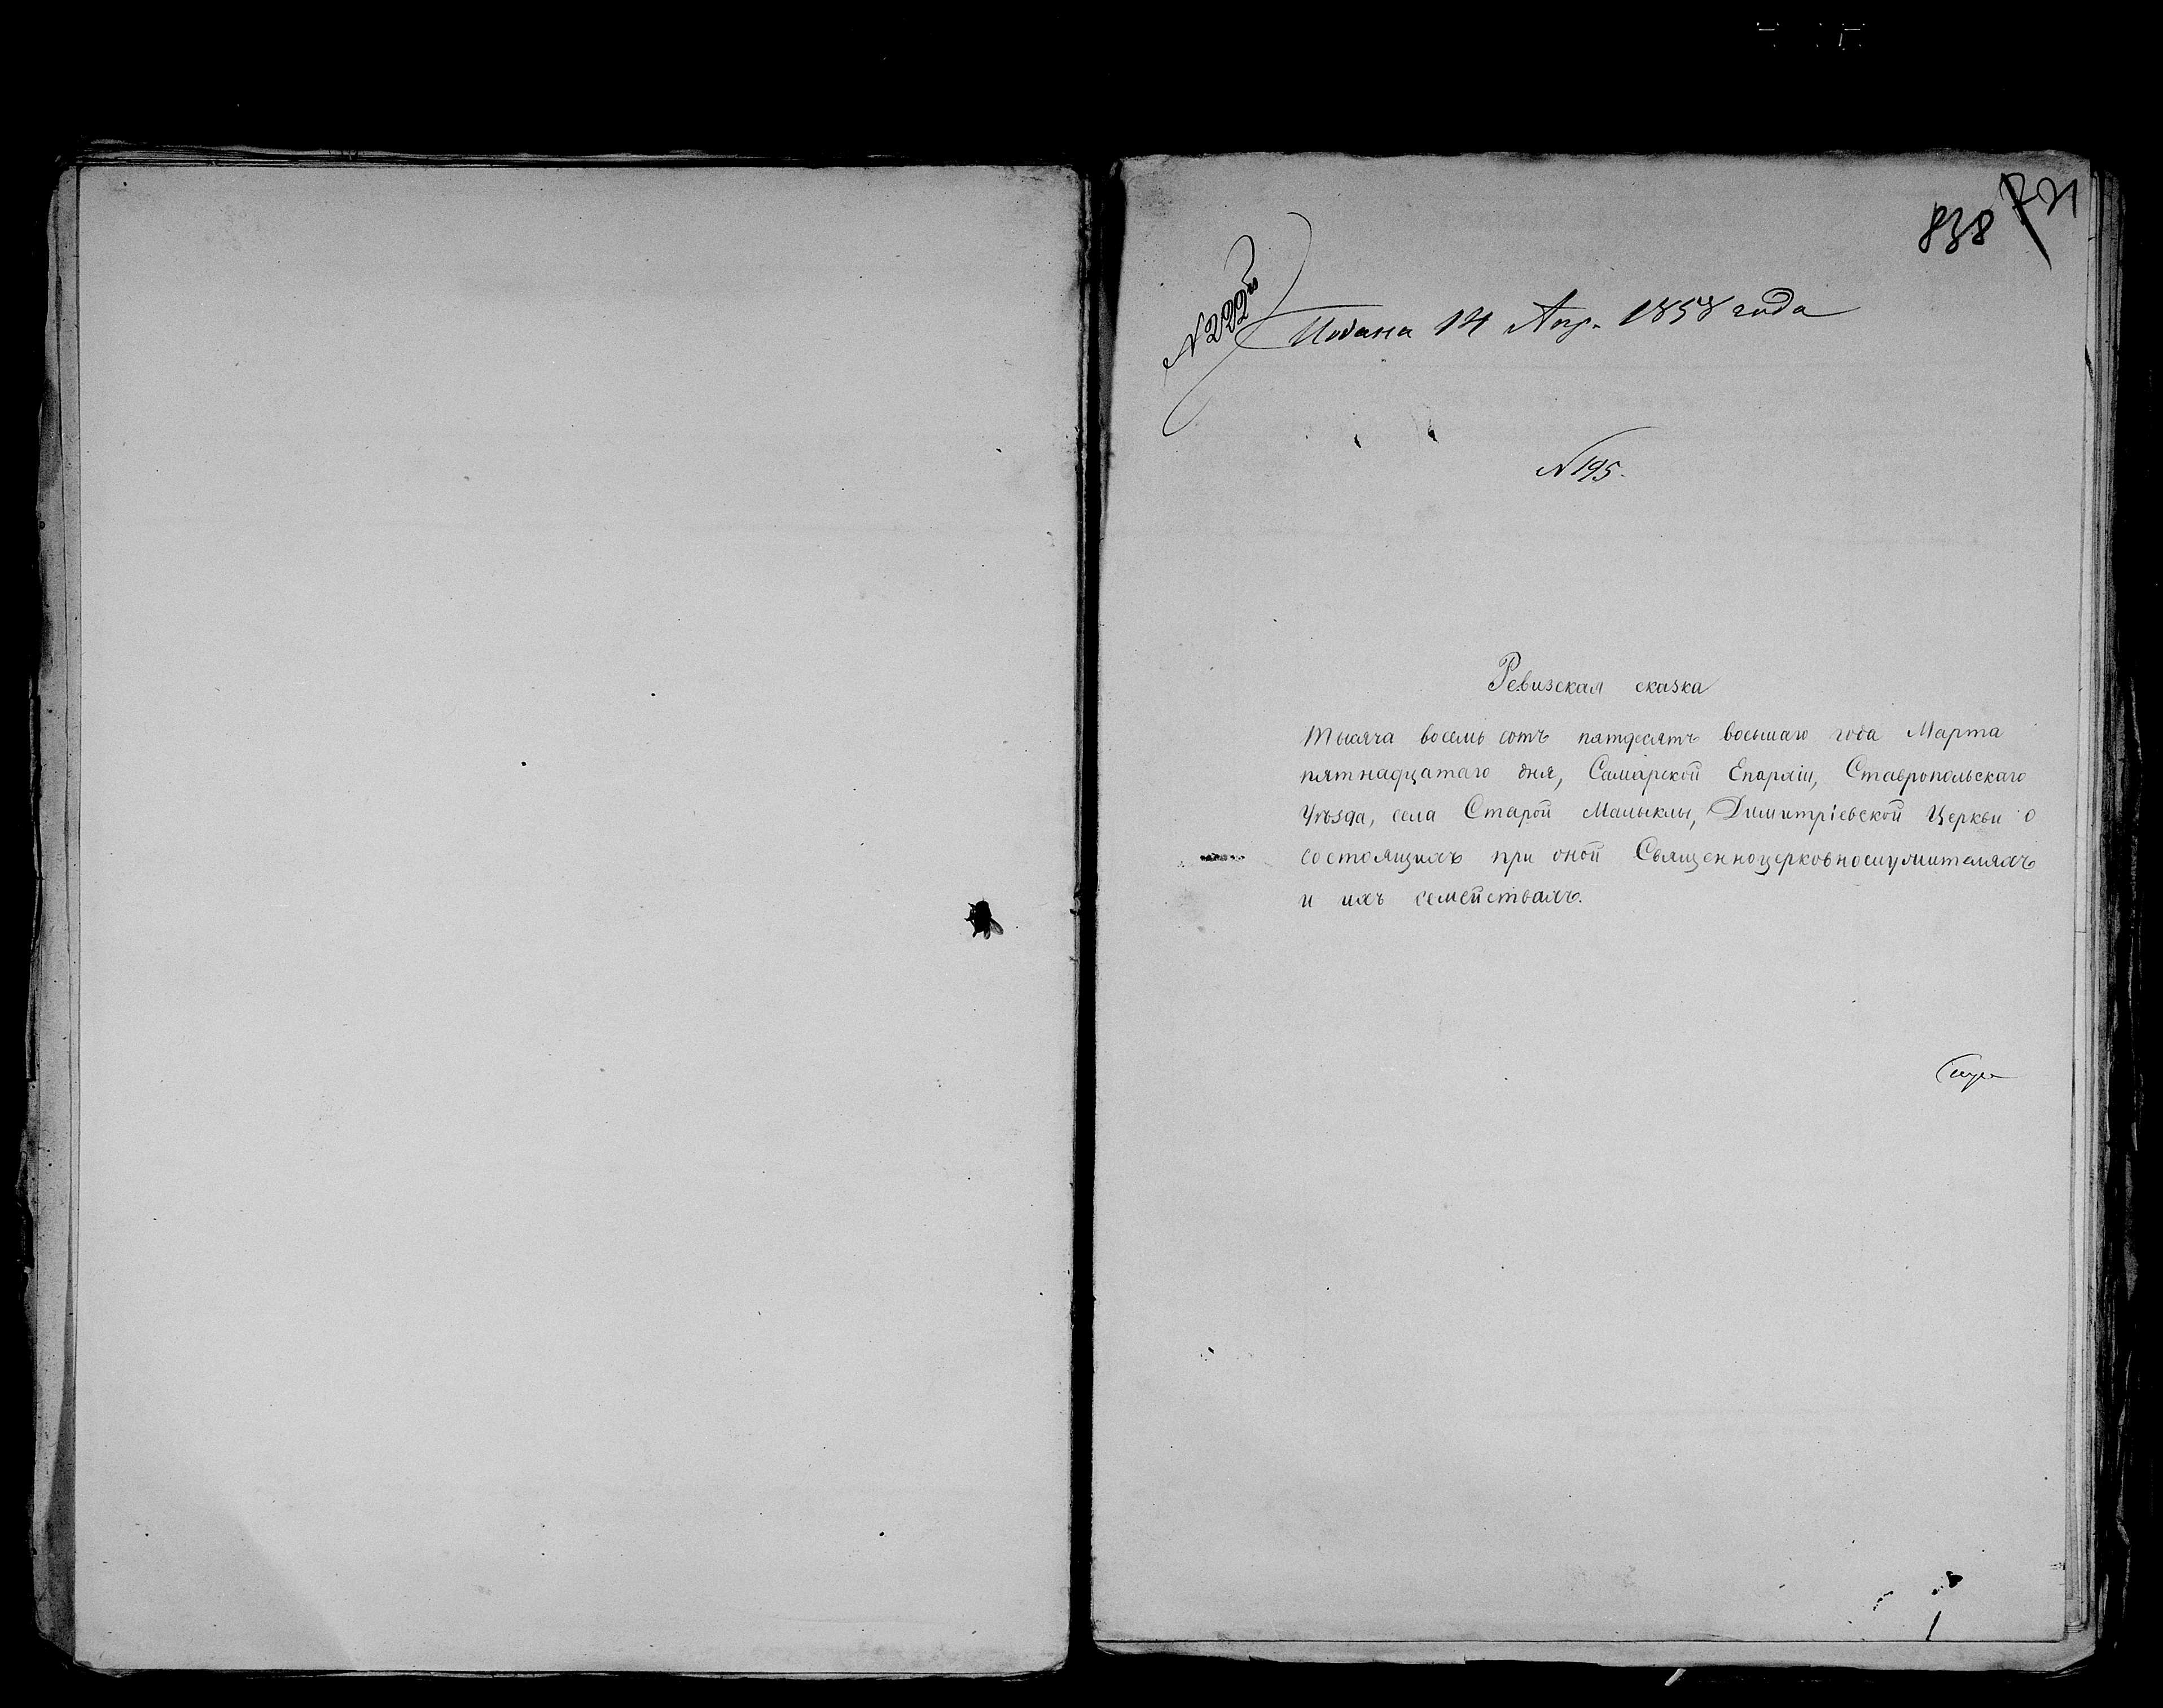 838
N 222
Подана 14 Апр. 1858 года
N 195.
Ревизская сказка
Тысяча восемь сотъ патдесятъ восьмаго года Марта
пятнадцатаго дня, Самарской Епархіи, Ставропольскаго
Уѣзда, села Старой Малыклы, Димитріевской Церкви о
состоящихъ при оной Священноцерковнослужителяхъ
и ихъ семействахъ.